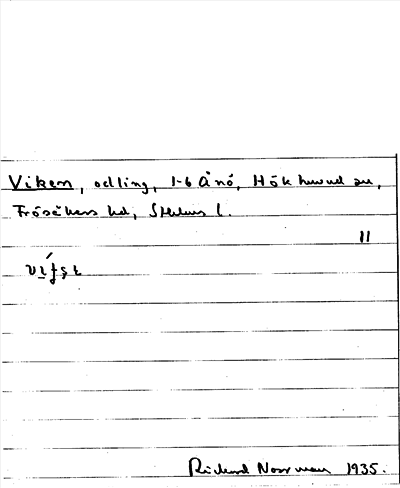 Viken, odling, 1-6 Ånö, Hökhuvud sn,
Frösåkers hd, Sthlms l.
11
Richard Norrman 1935.